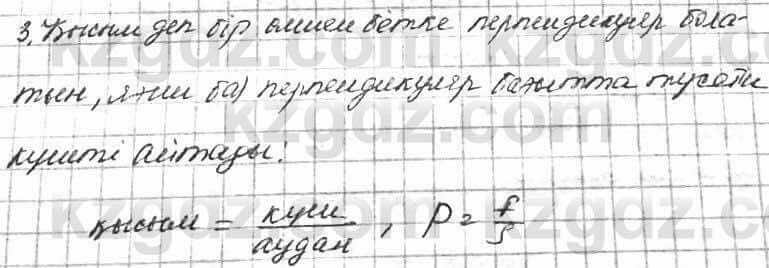 3. Қысым деп бір өлшем бетке перпендикуляр бола-
тын, яғни ба) перпендикуляр бағытта түсетін
күшті айтады:
қысым = күш / аудан , P = F / S